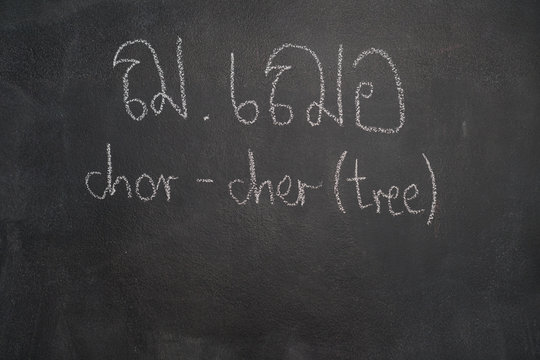 ฌ.เฌอ
chor - cher (tree)